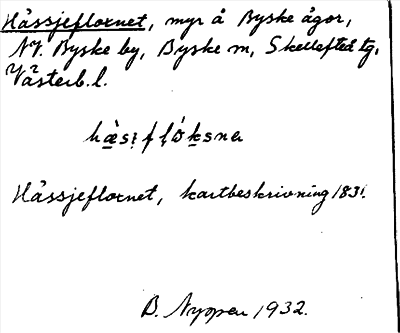 Hässjeflornet, myr å Byske ägor,
NV. Byske by, Byske sn, Skellefteå tg,
Västerb. l.
Hässjeflornet, kartbeskrivning 1831.
B. Nyopen 1932.